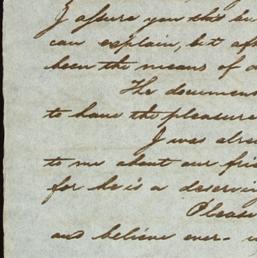 I assure you this bu
can explain, but aft
been the means of a
The documen
to have the pleasure
I was alre
to me about our frie
for he is a deservin
Please
and believe ever-